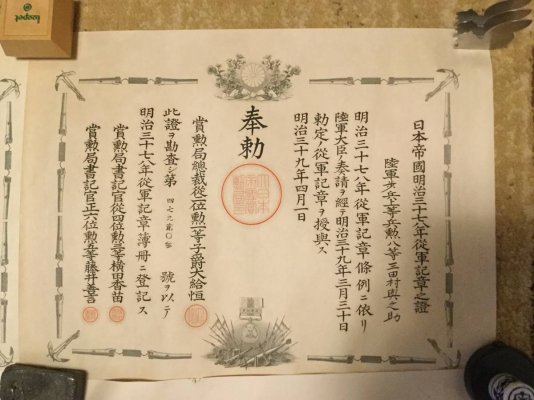 日本帝國明治三十七八年從軍記章之證
勲八等三田村與之助
明治三十七八年從軍記章條例ニ依リ
陸軍大臣ノ奏請ヲ經テ明治三十九年三月三十日
勅定ノ從軍記章ヲ授與ス
明治三十九年四月一日
奉勅
賞勲局總裁從二位勲一等子爵大給恒
此證ヲ勘査シ第 號ヲ以テ
明治三十七八年從軍記章簿冊ニ登記ス
賞勲局書記官從四位勲三等橫田香苗
賞勲局書記官正六位勲五等藤井善言